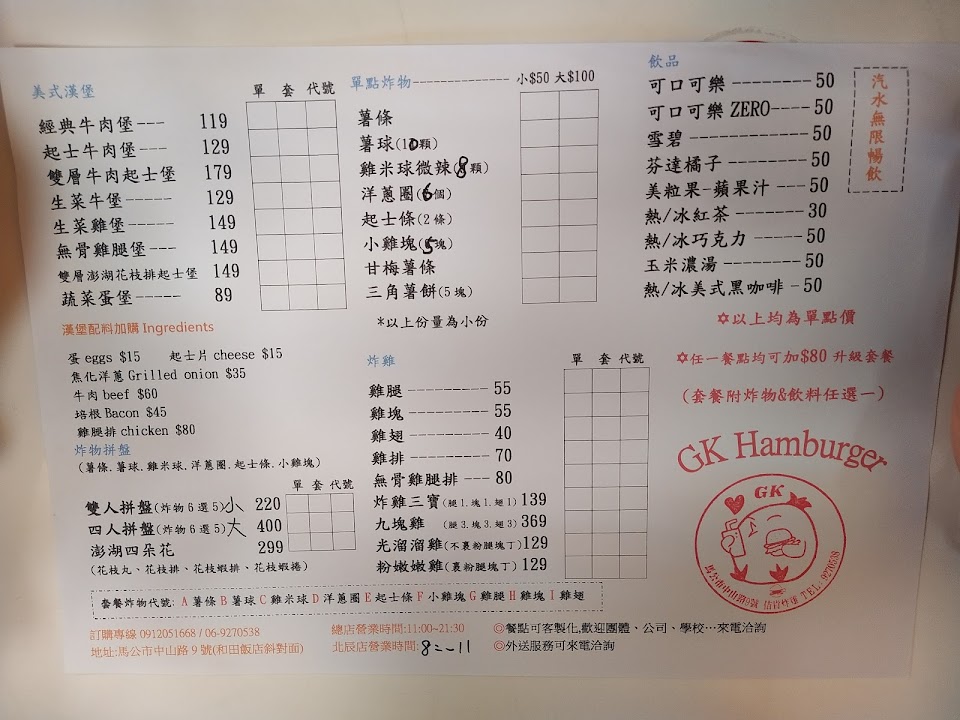 美式漢堡 單 套 代號
經典牛肉堡--- 119
起士牛肉堡--- 129
雙層牛肉起士堡 179
生菜牛堡----- 129
生菜雞堡---- 149
無骨雞腿堡--- 149
雙層澎湖花枝排起士堡 149
蔬菜蛋堡----- 89
漢堡配料加購 Ingredients
蛋 eggs $15 起士片 cheese $15
焦化洋蔥 Grilled onion $35
牛肉 beef $60
培根 Bacon $45
雞腿排 chicken $80
炸物拼盤
(薯條.薯球.雞米球.洋蔥圈.起士條.小雞塊)
單 套 代號
雙人拼盤(炸物6選5)小 220
四人拼盤(炸物6選5)大 400
澎湖四朵花 299
(花枝丸、花枝排、花枝蝦排、花枝蝦捲)
單點炸物--------------- 小$50 大$100
薯條
薯球(10顆)
雞米球微辣(8顆)
洋蔥圈(6個)
起士條(2條)
小雞塊(5塊)
甘梅薯條
三角薯餅(5塊)
*以上份量為小份
炸雞 單 套 代號
雞腿--------- 55
雞塊--------- 55
雞翅--------- 40
雞排--------- 70
無骨雞腿排--- 80
炸雞三寶(腿1.塊1.翅1) 139
九塊雞 (腿3.塊3.翅3) 369
光溜溜雞(不裹粉腿塊丁)129
粉嫩嫩雞(裹粉腿塊丁) 129
飲品
可口可樂 -------- 50
可口可樂 ZERO---- 50
雪碧 ------------- 50
芬達橘子 --------- 50
美粒果-蘋果汁 --- 50
熱/冰紅茶 -------- 30
熱/冰巧克力 ------ 50
玉米濃湯--------- 50
熱/冰美式黑咖啡 -50
汽水無限暢飲
✡以上均為單點價
✡任一餐點均可加$80 升級套餐
(套餐附炸物&飲料任選一)
GK Hamburger
GK
馬公市中山路9號 TEL: 9270538
套餐炸物代號: A 薯條 B 薯球 C 雞米球 D 洋蔥圈 E 起士條 F 小雞塊 G 雞腿 H 雞塊 I 雞翅
訂購專線 0912051668 / 06-9270538
地址:馬公市中山路 9 號(和田飯店斜對面)
總店營業時間:11:00~21:30
北辰店營業時間: 8:--11
◎餐點可客製化,歡迎團體、公司、學校…來電洽詢
◎外送服務可來電洽詢